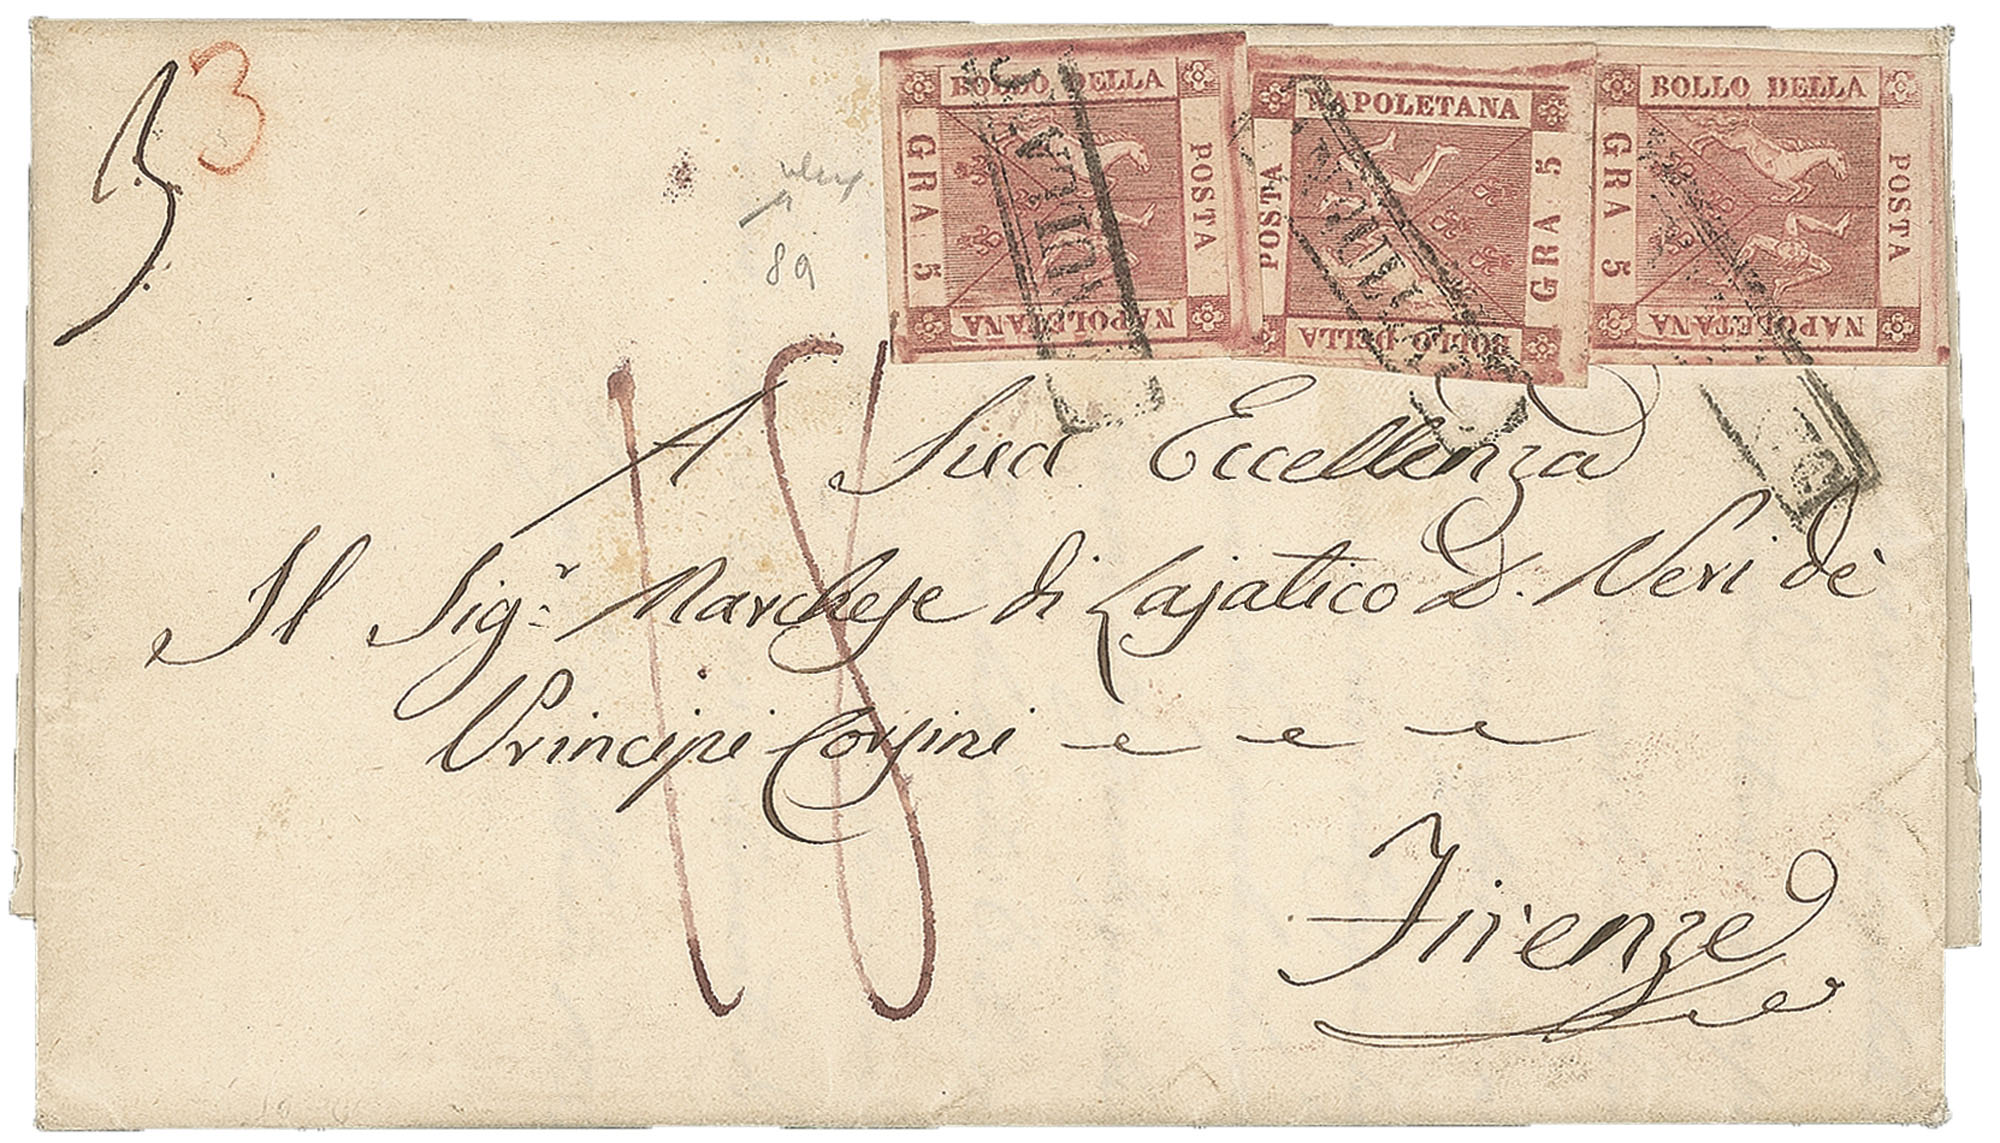 3
3
89
BOLLO DELLA
POSTA
NAPOLETANA
GRA 5
NAPOLETANA
GRA 5
BOLLO DELLA
POSTA
BOLLO DELLA
POSTA
NAPOLETANA
GRA 5
ANNULLATO
18
A Sua Eccellenza
Il Sigr. Marchese di Lajatico D. Neri dè
Principi Corsini
Firenze